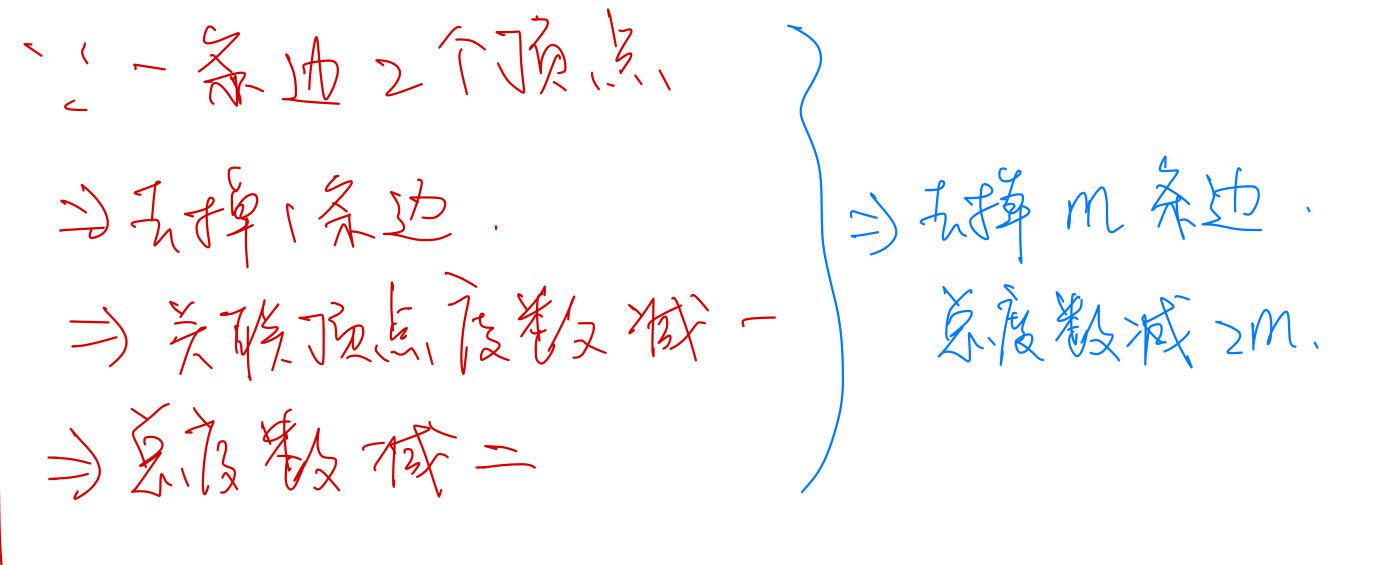 ∵ 一条边2个顶点
⇒ 去掉1条边.
⇒ 关联顶点度数减一
⇒ 总度数减二
⇒ 去掉m条边.
总度数减2m.